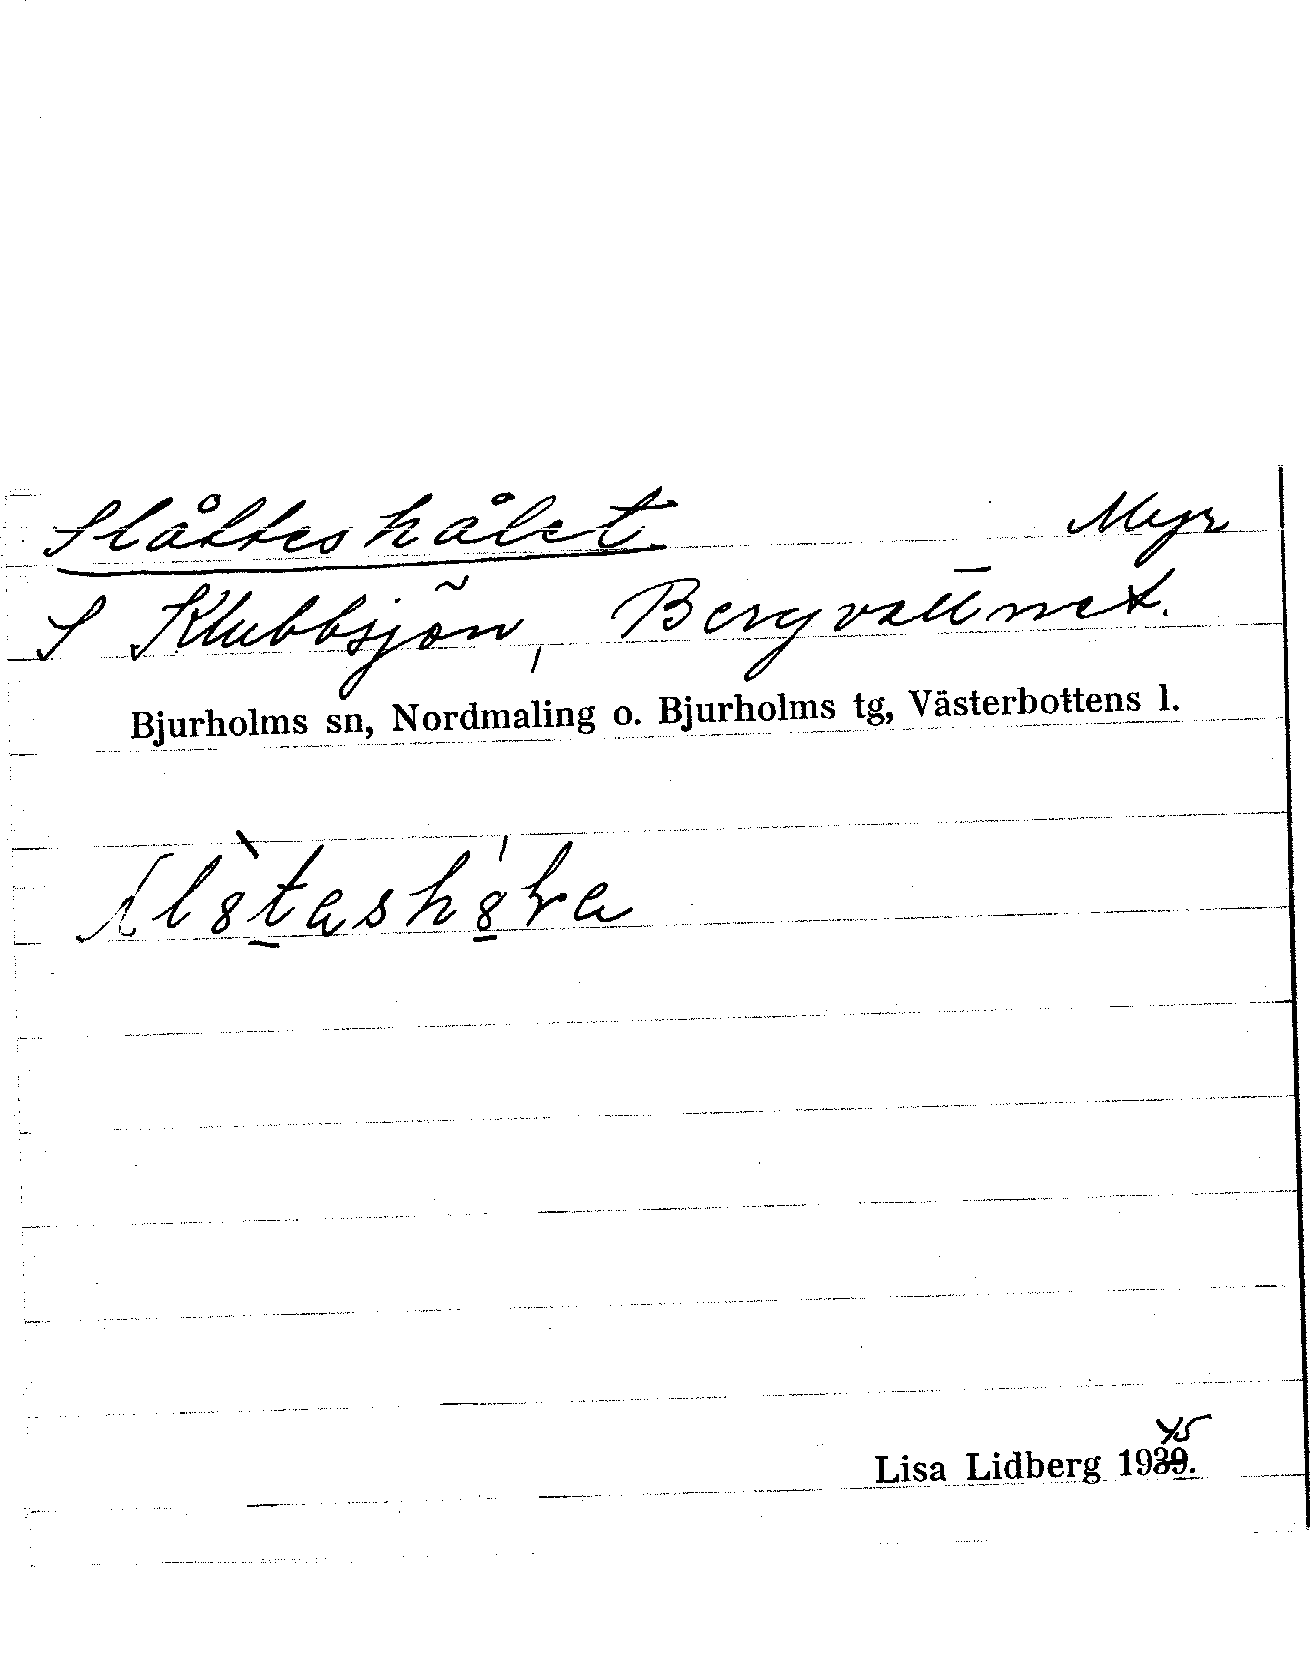 Slåtteshålet Myr
S Klubbsjön, Bergvattnet.
Bjurholms sn, Nordmaling o. Bjurholms tg, Västerbottens l.
Lisa Lidberg 1945.